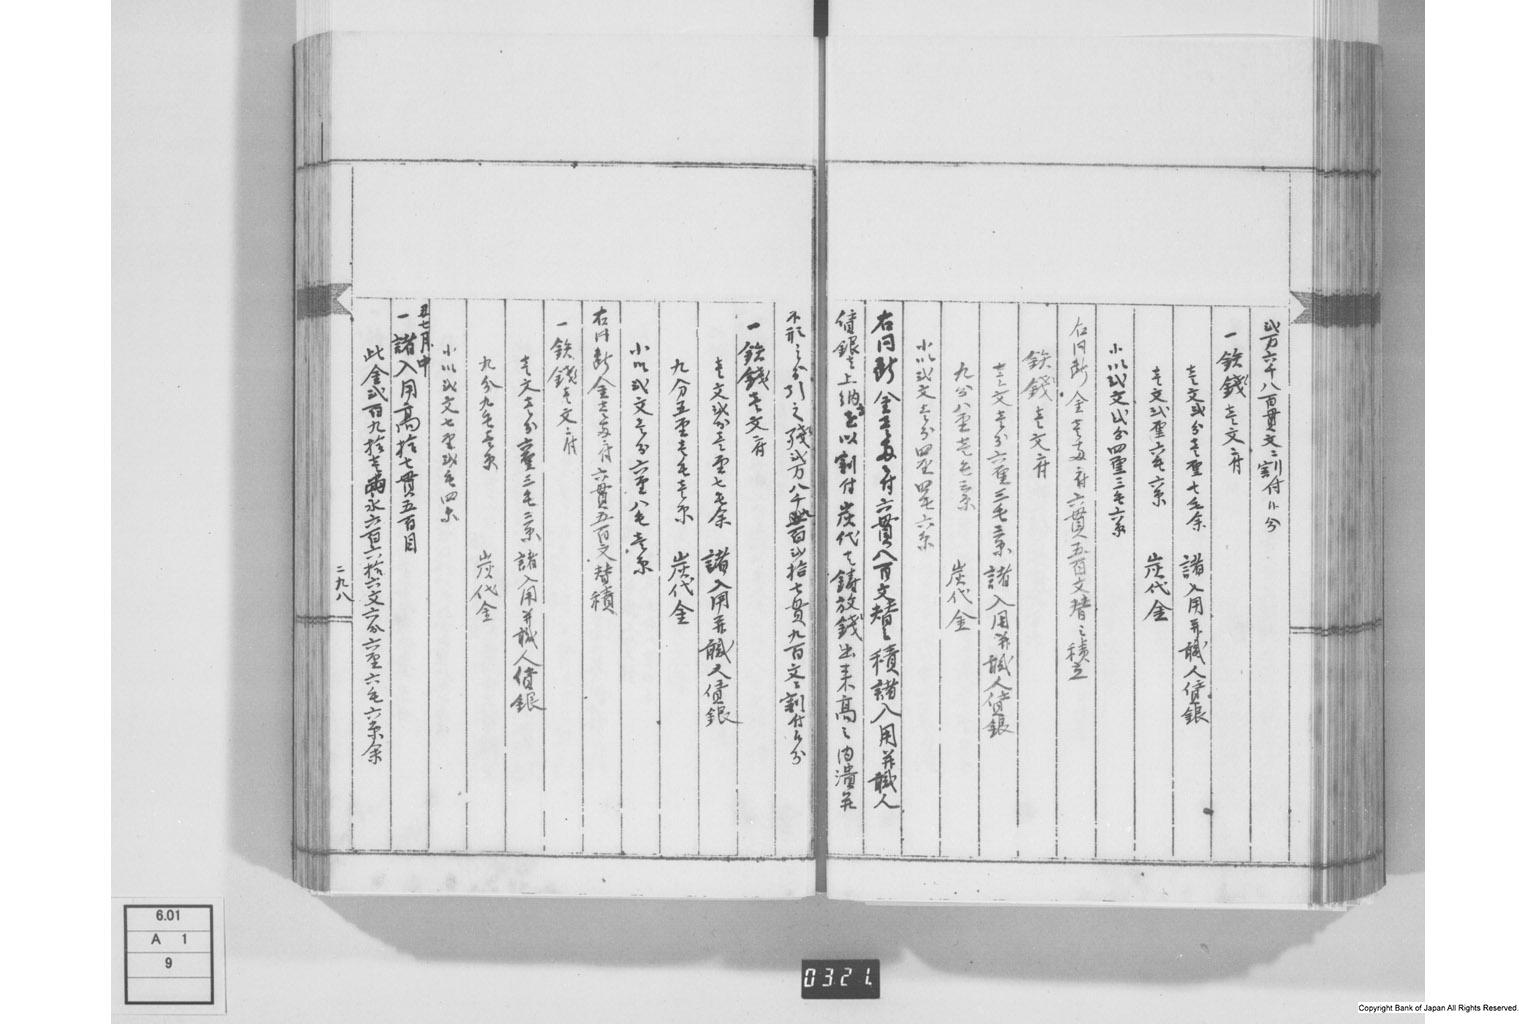 弐万六千八百貫文ニ割付候分
一鉄銭壱文ニ付
壱文弐分壱厘七毛余 諸入用并職人賃銀
壱文弐厘六毛六糸 炭代金
小以弐文弐分四厘三毛六糸
右同断金壱両ニ付六貫五百文替之積立
鉄銭壱文ニ付
壱文壱分六厘三毛三糸 諸入用并職人賃銀
九分八厘壱毛三糸 炭代金
小以弐文壱分四厘四毛六糸
右同断金壱両ニ付六貫八百文替之積諸入用并職人
賃銀者上納高を以割付炭代者鋳放銭出来高之内潰并
不形之分引之残弐万八千 百弐拾七貫九百文ニ割付候分
一鉄銭壱文ニ付
壱文弐分壱厘七毛余 諸入用并職人賃銀
九分五厘壱毛壱糸 炭代金
小以弐文壱分六厘八毛壱糸
右同断金壱両ニ付六貫五百文替積
一鉄銭壱文ニ付
壱文壱分六厘三毛三糸 諸入用并職人賃銀
九分九毛壱糸 炭代金
小以弐文七厘弐毛四糸
丑七月中
一諸入用高拾七貫五百目
此金弐百九拾壱両永六百六拾六文六分六厘六毛六糸余
二九八
6.01
A 1
9
0321.
Copyright Bank of Japan All Rights Reserved.